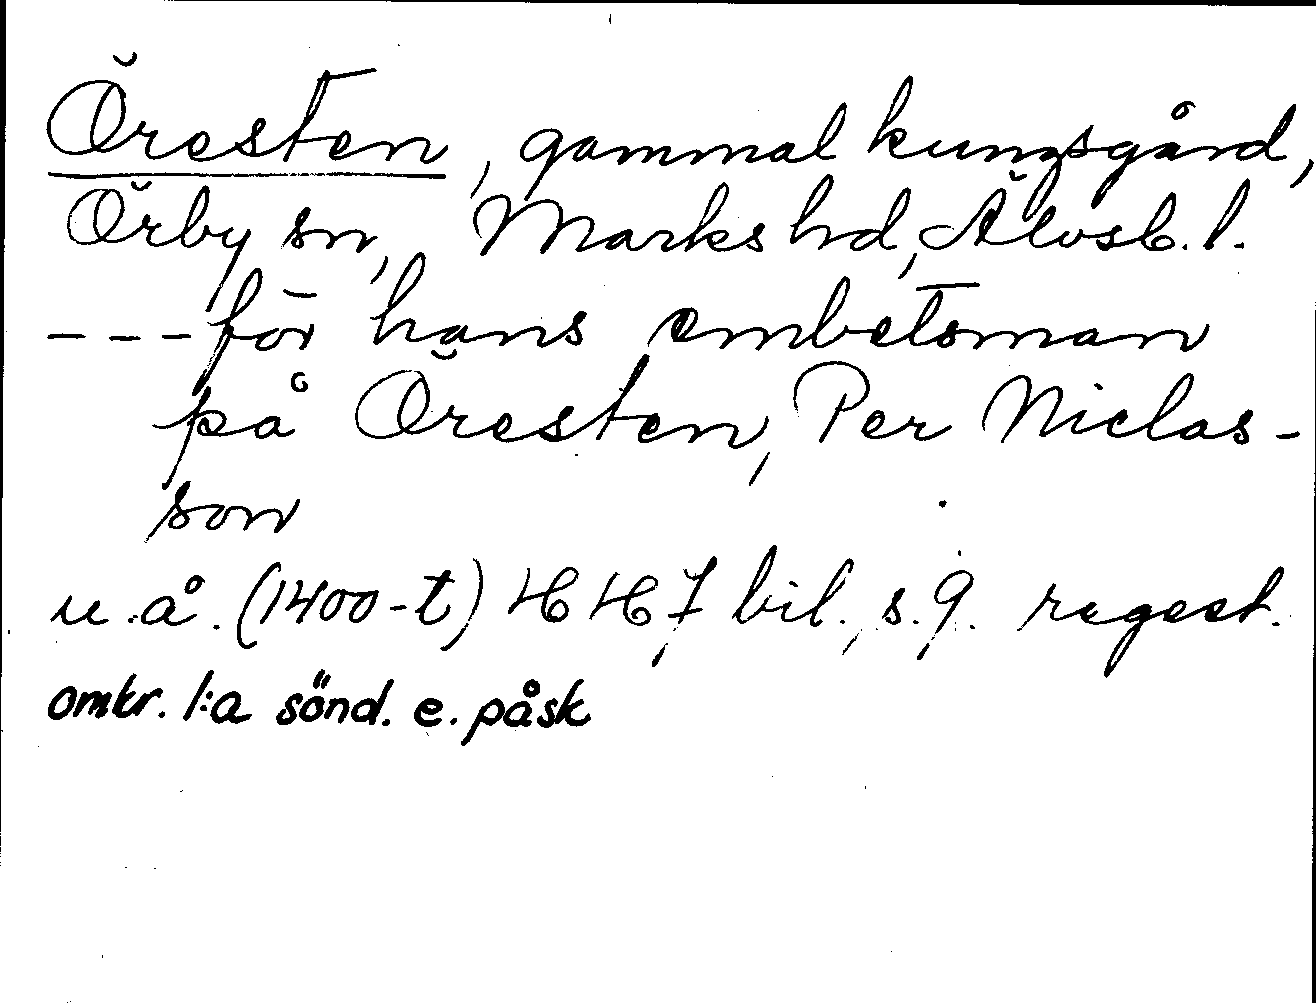 Öresten, gammal kungsgård,
Örby sn, Marks hd, Älvsb. l.
---för hans embetsman
på Öresten, Per Niclas-
son
u.å. (1400-t) HH 7, bil., s. 9. regest.
omkr. 1:a sönd. e. påsk